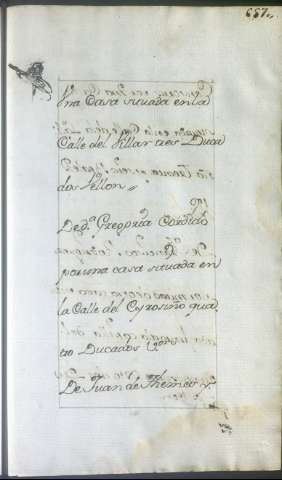 657,,
Vna Casa situada en la
Calle del Villar tres Duca
dos Vellon,,
De D.ª Gregoria
por una casa situada en
la Calle del qua
tro Ducados
De Juan de